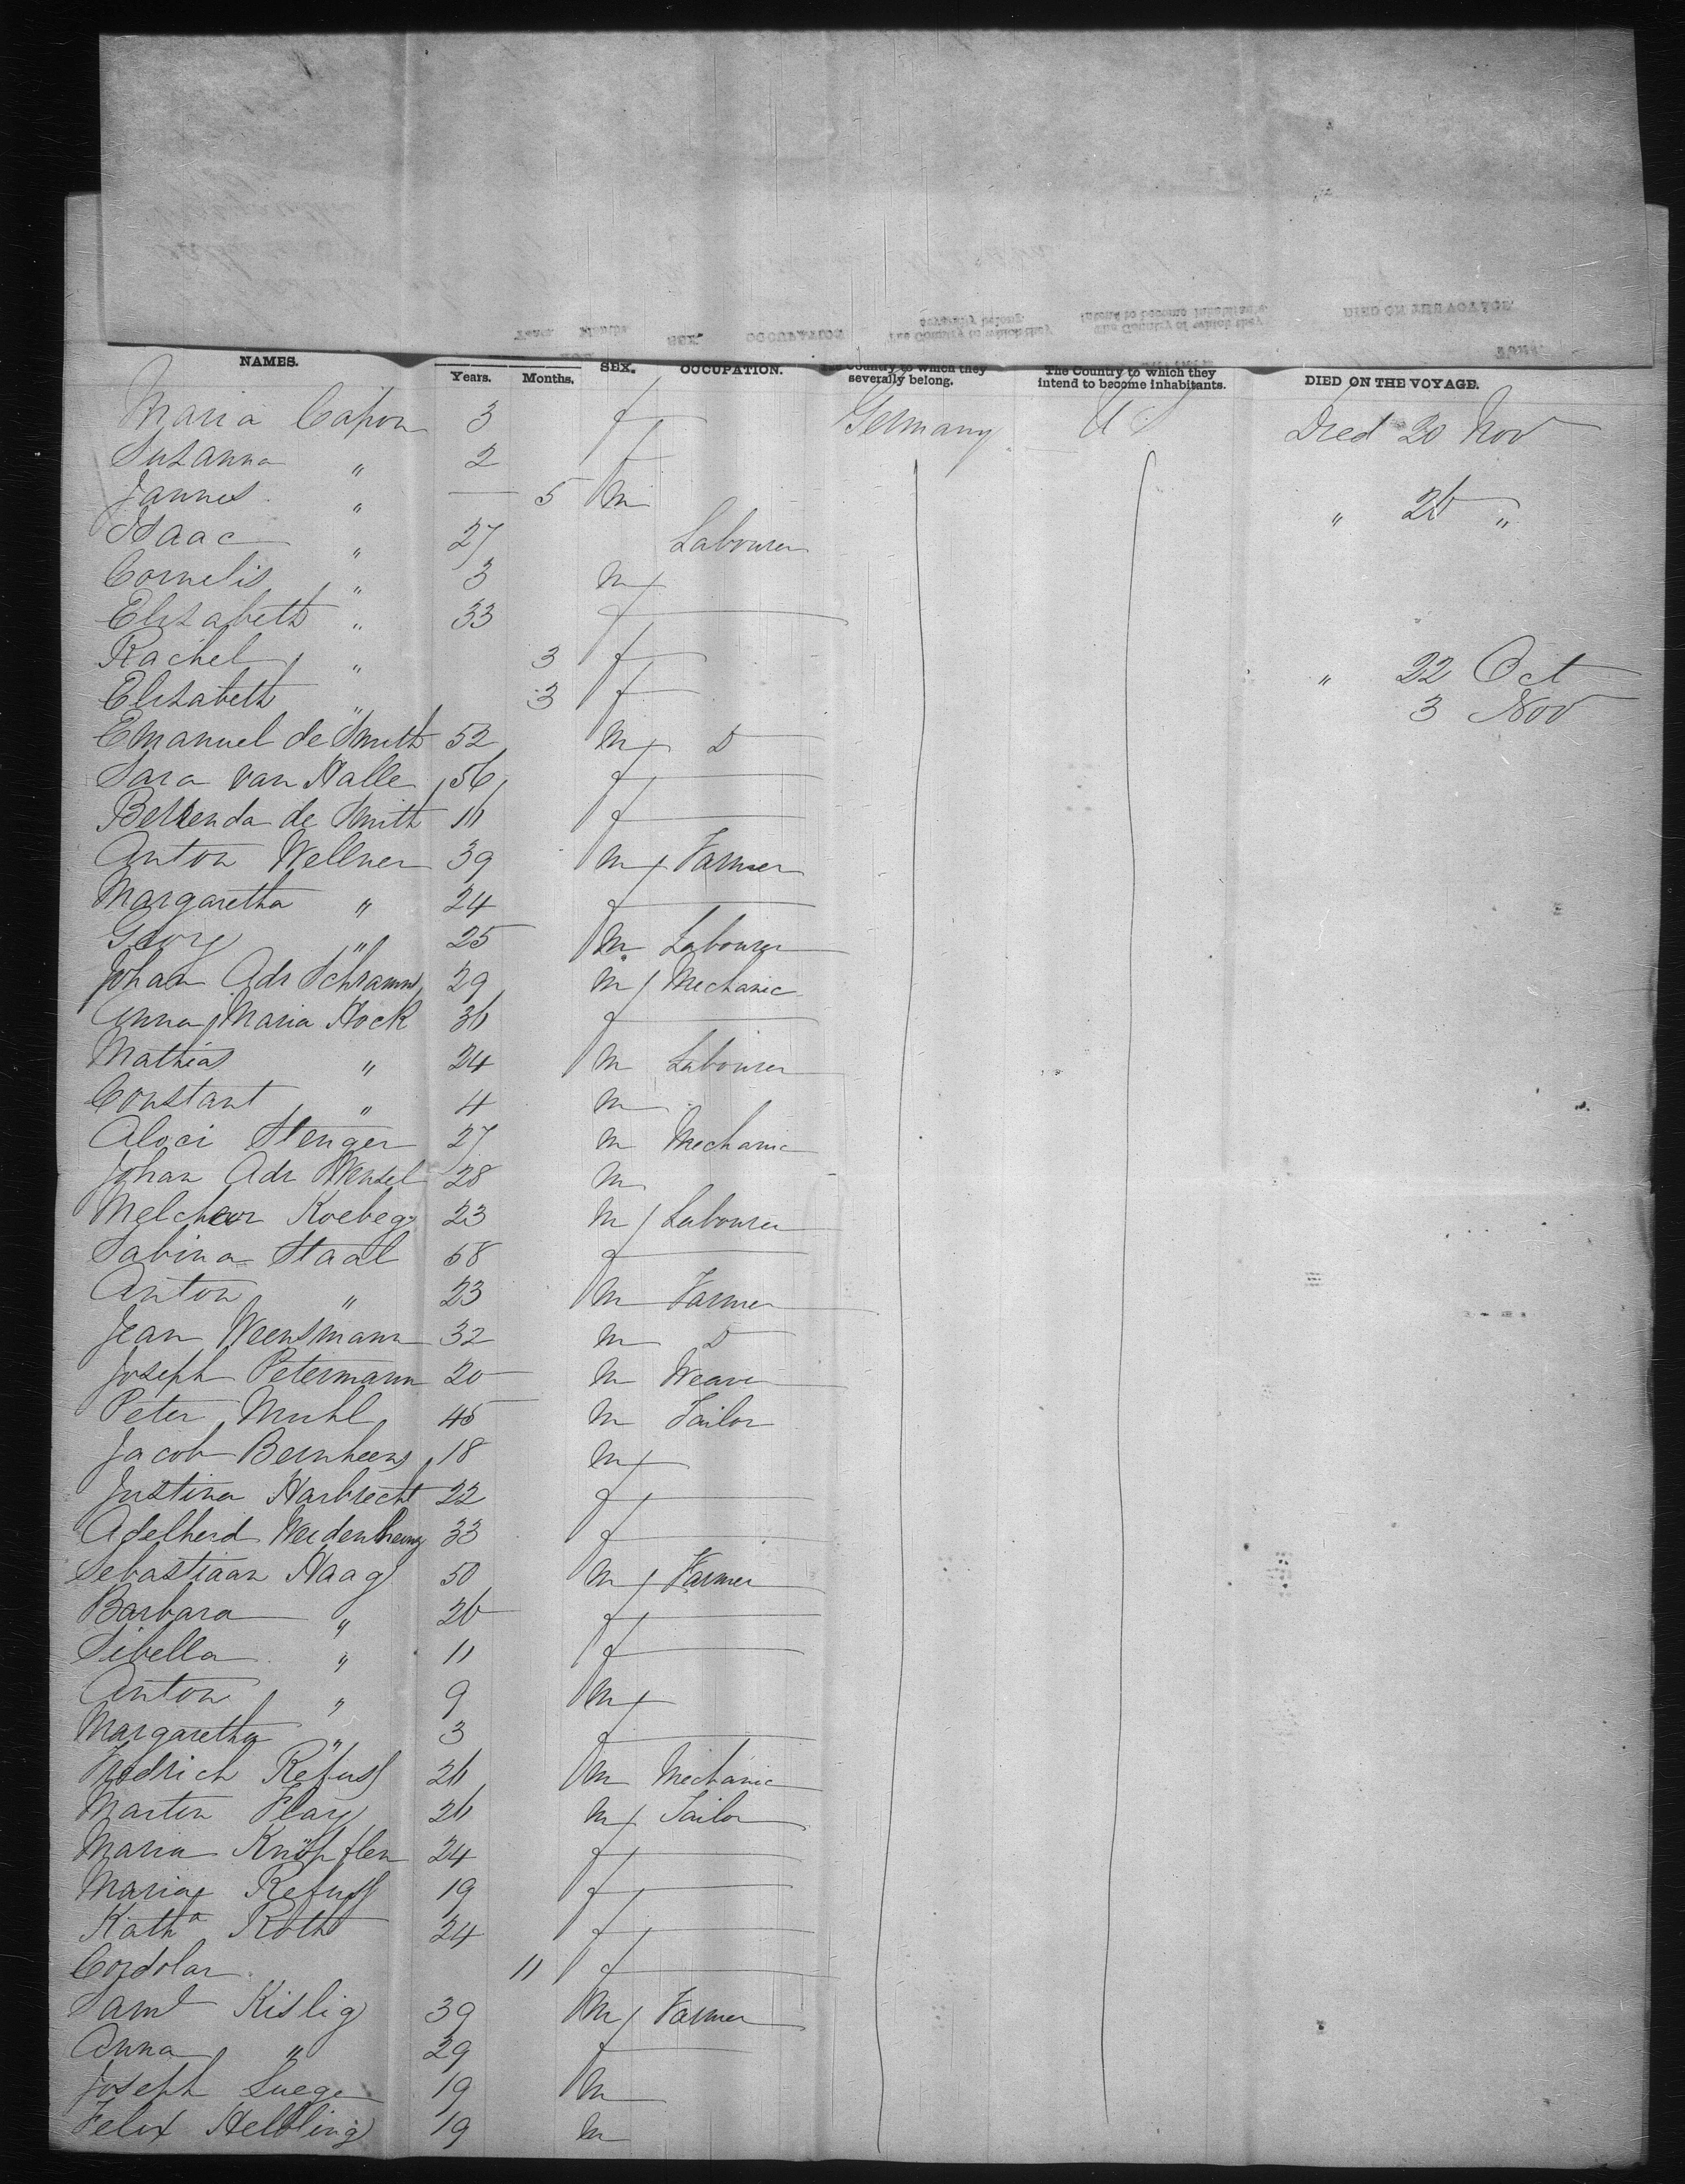 NAMES. Years. Months. SEX. OCCUPATION. The Country to which they severally belong. The Country to which they intend to become inhabitants. DIED ON THE VOYAGE.
Maria Capon 3 f Germany U S Died 20 Nov
Suzanna " 2 f
Jannes " — 5 m " 26 "
Isaac " 27 Labourer
Cornelis " 3 m
Elizabeth " 33 f
Rachel " 3 f " 22 Oct
Elizabeth " 3 f 3 Nov
Emanuel de Smith 52 m D
Sara van Halle 56 f
Berenda de Smith 16 f
Anton Wellner 39 m Farmer
Margaretha " 24 f
Georg " 25 m Labourer
Johan Adr Schramm 29 m Mechanic
Anna Maria Hock 36 f
Mathias " 24 m Labourer
Constant " 4 m
Aloci Stenger 27 m Mechanic
Johan Adr Wenzel 28 m
Melcheor Koebeg 23 m Labourer
Sabina Staal 58 f
Anton " 23 m Farmer
Jean Weensmann 32 m D
Joseph Petermann 20 m Weaver
Peter Muhl 45 m Tailor
Jacob Bernheens 18 m
Justina Harbrecht 22 f
Adelheid 33 f
Sebastiaan Haag 50 m Farmer
Barbara " 26 f
Sibella " 11 f
Anton " 9 m
Margaretha " 3 f
Fredrich Refuss 26 m Mechanic
Martin Flay 26 m Tailor
Maria Knöpflen 24 f
Maria Refuss 19 f
Kath^a Roth 24 f
Cordolar 11 f
Saml Kislig 39 m Farmer
Anna " 29 f
Joseph Luege 19 m
Felix Helbling 19 m